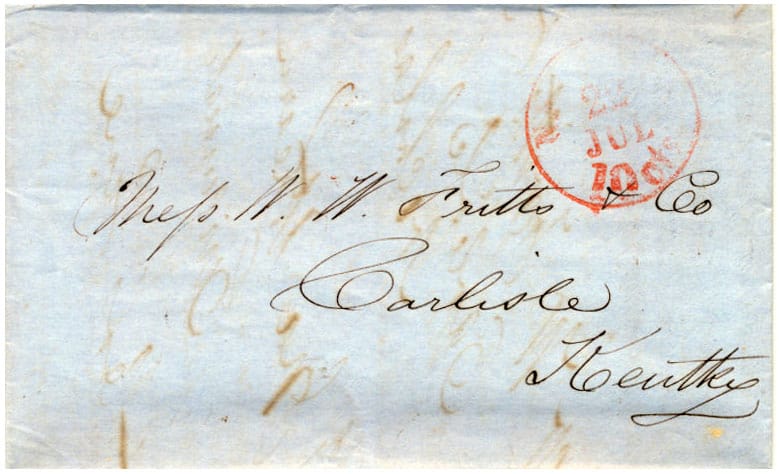 22
JUL
10 cts
Mess. W. W. Fritts & Co
Carlisle
Kentky